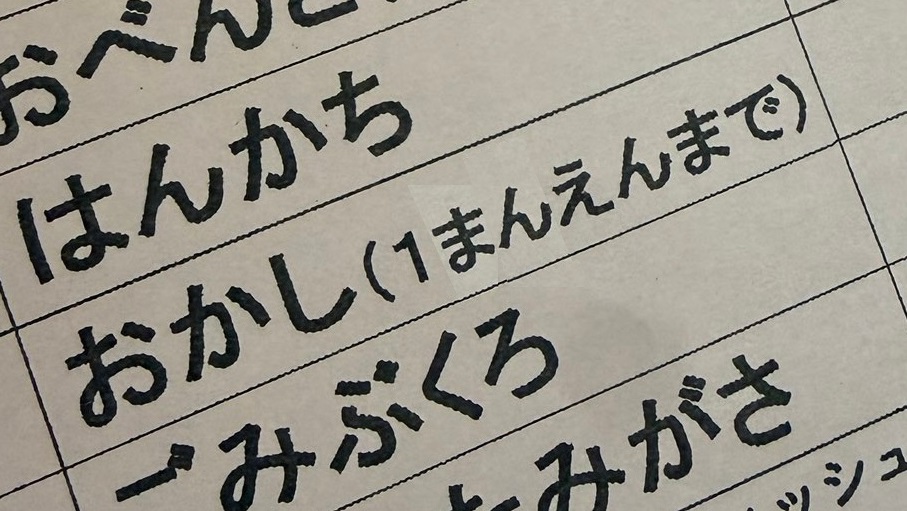 おべんと
はんかち
おかし(1まんえんまで)
ごみぶくろ
たみがさ
ッシュ